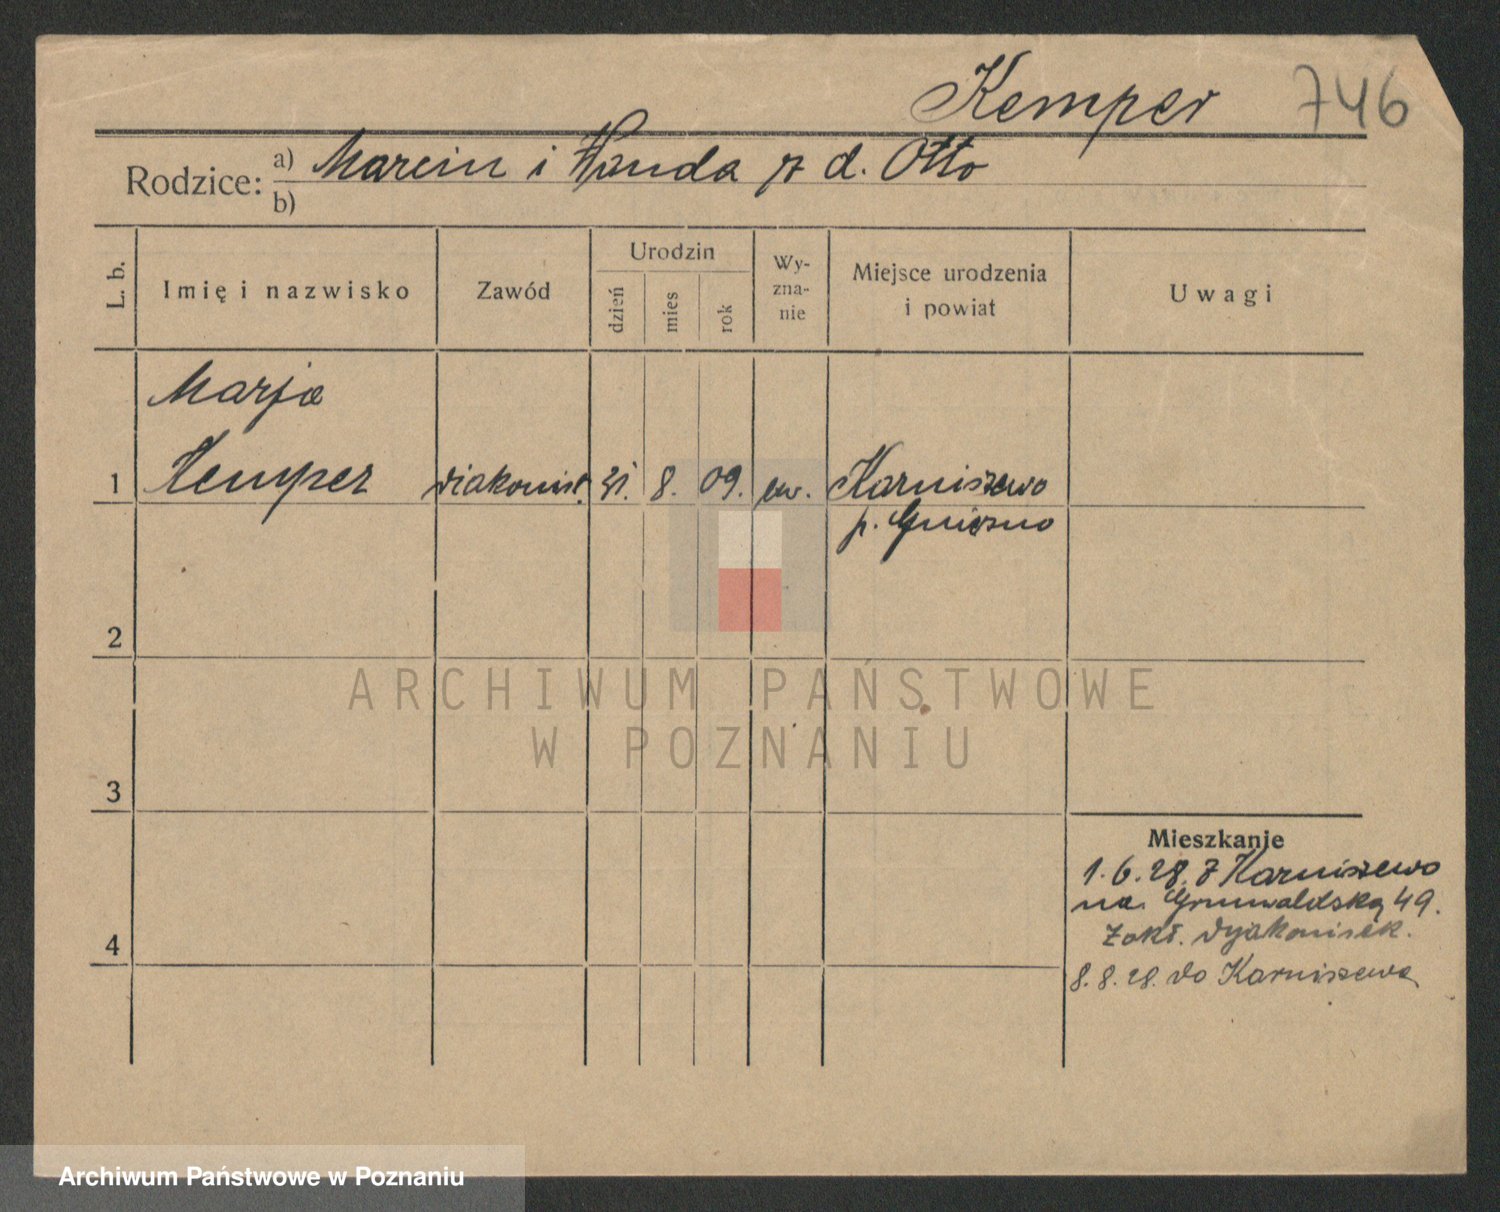 Kemper 746
Rodzice: a) Marcin i Wanda z d. Otto
b)
L. b.
Imię i nazwisko
Zawód
Urodzin
dzień
mies
rok
Wy-
zna-
nie
Miejsce urodzenia
i powiat
Uwagi
Marja
1 Kemper diakonis. 31. 8. 09. ew. Karniszewo
p. Gniezno
2
ARCHIWUM PAŃSTWOWE
W POZNANIU
3
Mieszkanie
1.6.28. z Karniszewo
na Grunwaldską 49.
4 Zakł. dyakonisek.
8.8.28. do Karniszewa
Archiwum Państwowe w Poznaniu